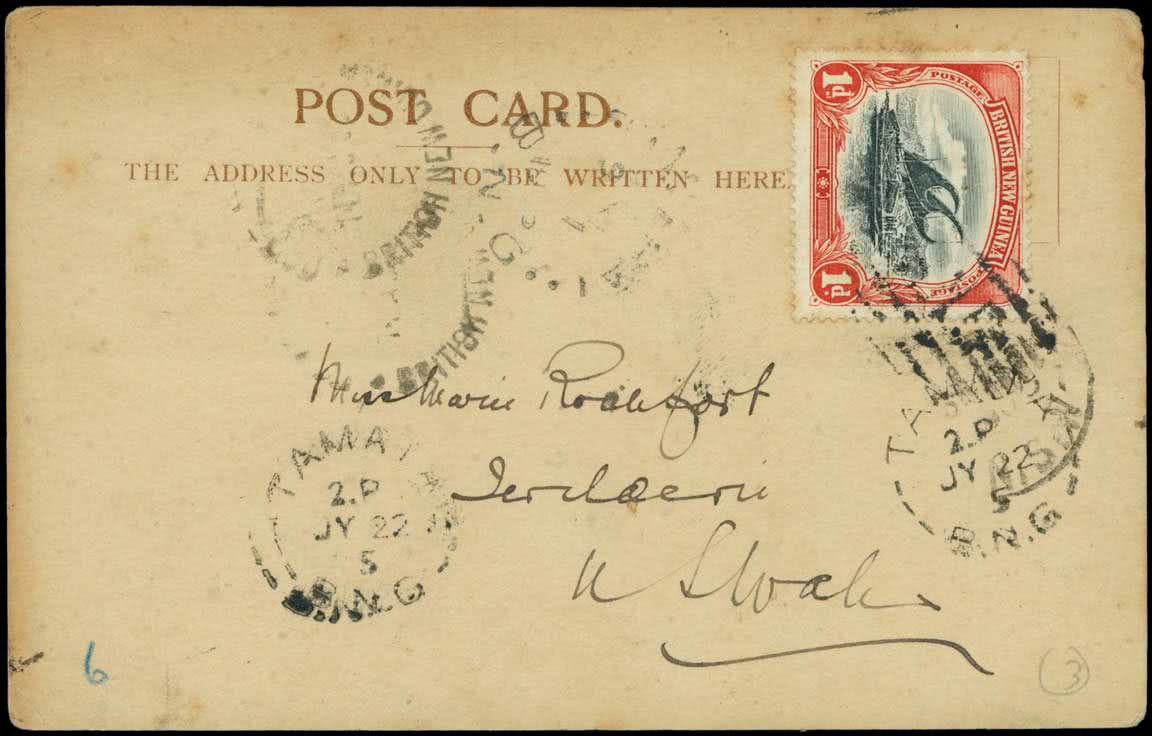 POST CARD.
THE ADDRESS ONLY TO BE WRITTEN HERE.
1d.
POSTAGE
BRITISH NEW GUINEA
POSTAGE
1d.
BRITISH NEW
BRITISH NEW
B.N.G
Miss Marie Rochfort
Jerilderie
N S Wales
TAMATA
2.P
JY 22
5
B.N.G
TAMATA
2.P
JY 22
5
B.N.G
6
3